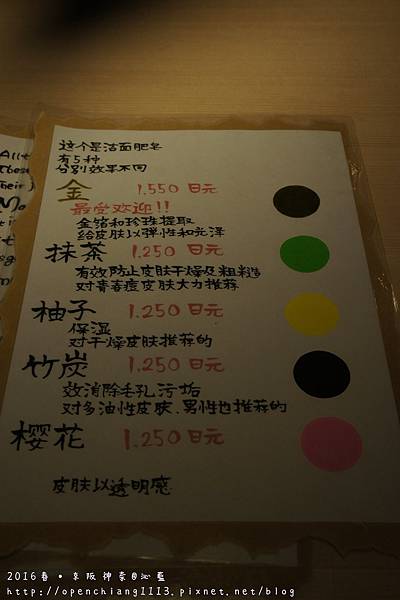 这个是洁面肥皂
有5种
分别效果不同
金 1.550 日元
最受欢迎!!
金箔和珍珠提取
给皮肤以弹性和光泽
抹茶 1.250 日元
有效防止皮肤干燥及粗糙
对青春痘皮肤大力推荐
柚子 1.250 日元
保湿
对干燥皮肤推荐的
竹炭 1.250 日元
效消除毛孔污垢
对多油性皮肤.男性也推荐的
樱花 1.250 日元
皮肤以透明感
2016春•京阪神奈@沁藍
http://openchiang1113.pixnet.net/blog